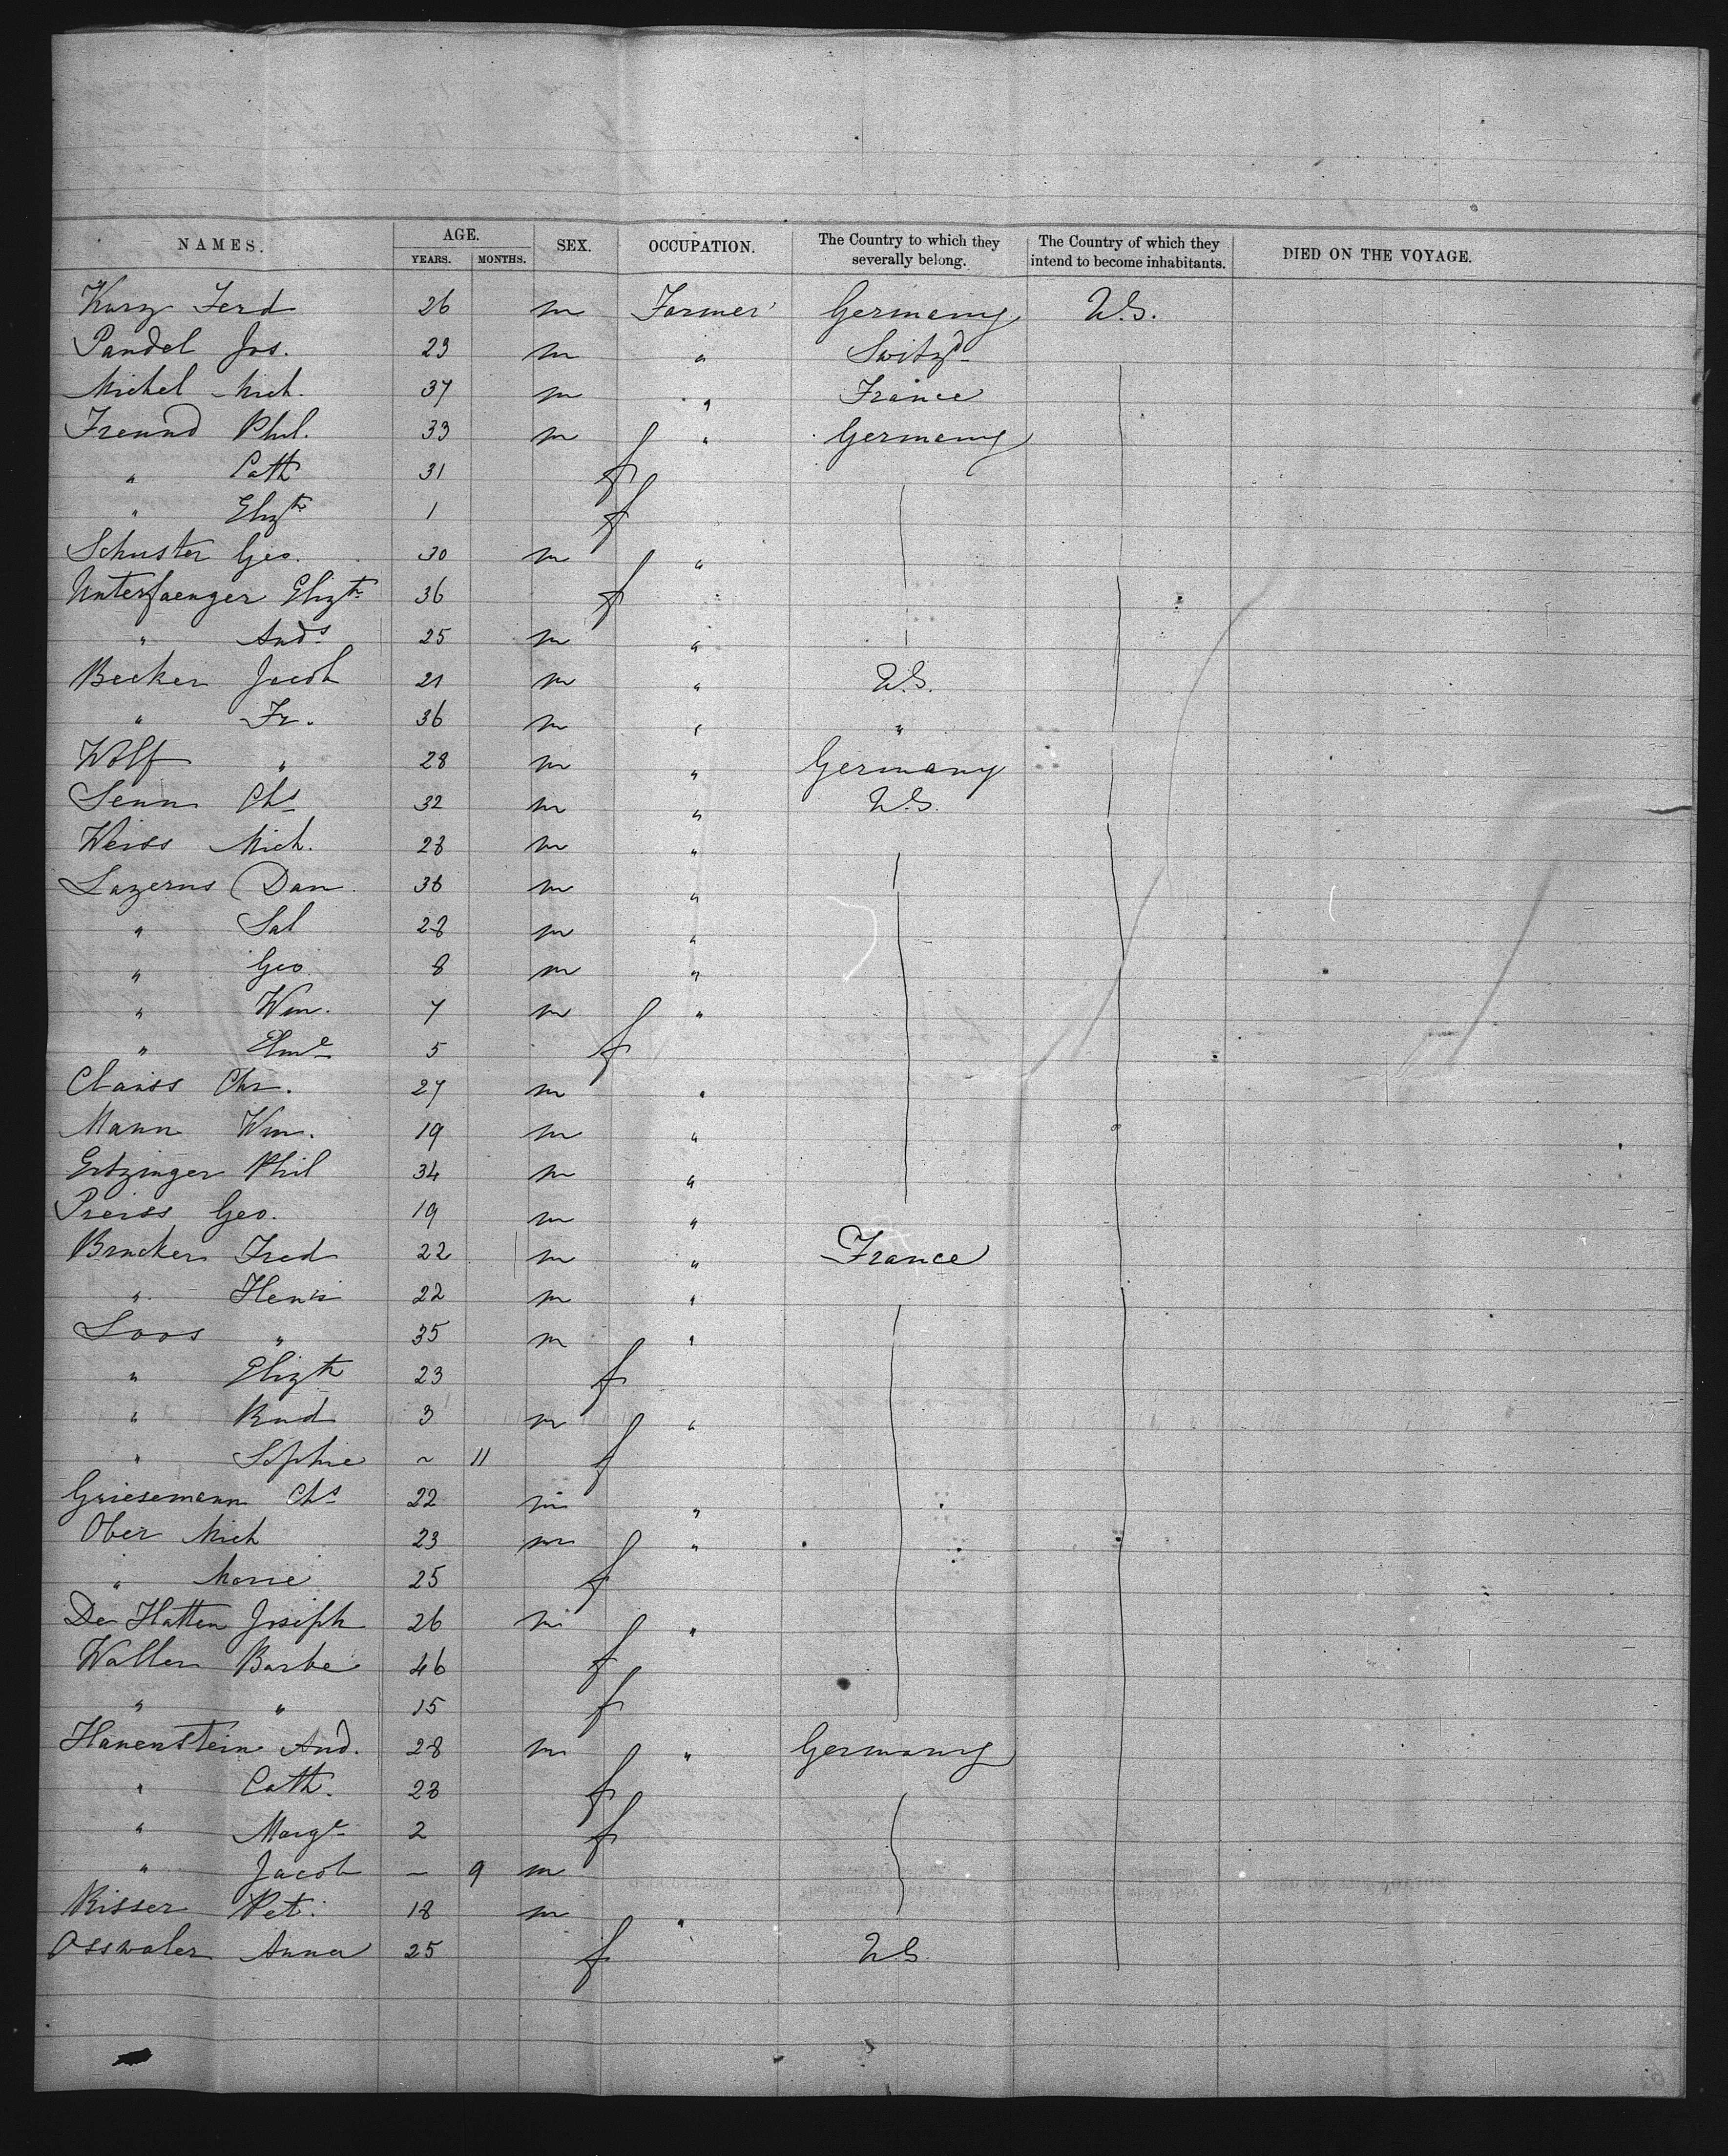 NAMES. AGE. SEX. OCCUPATION. The Country to which they severally belong. The Country of which they intend to become inhabitants. DIED ON THE VOYAGE.
YEARS. MONTHS.
Kurz Ferd 26 m Farmer Germany U.S.
Pandel Jos. 23 m " Switzd
Michel Mich. 37 m " France
Freund Phil. 33 m " Germany
" Cath 31 f
" Elizth 1 f
Schuster Geo. 30 m "
Unterfaenger Elizth 36 f
" Ands 25 m "
Becker Jacob 21 m " U.S.
" Fr. 36 m " "
Wolf " 28 m " Germany
Senn Chs 32 m " U.S.
Weiss Mich. 28 m "
Lazerus Dan 36 m "
" Sal 28 m "
" Geo 8 m "
" Wm. 7 m "
" 5 f
Clauss Chr. 27 m "
Mann Wm. 19 m "
Ertzinger Phil 34 m "
Preiss Geo. 19 m "
Brucker Fred 22 m " France
" Henri 22 m "
Loos " 35 m "
" Elizth 23 f
" Rud 3 m "
" Sophie ~ 11 f
Griesemann Chs 22 m "
Ober Mich 23 m "
" Marie 25 f
De Hatten Joseph 26 m "
Walter Barbe 46 f
" " 15 f
Hanenstein And. 28 m " Germany
" Cath. 28 f
" Marge 2 f
" Jacob — 9 m
Risser Pet. 18 m "
Osswaler Anna 25 f U.S.